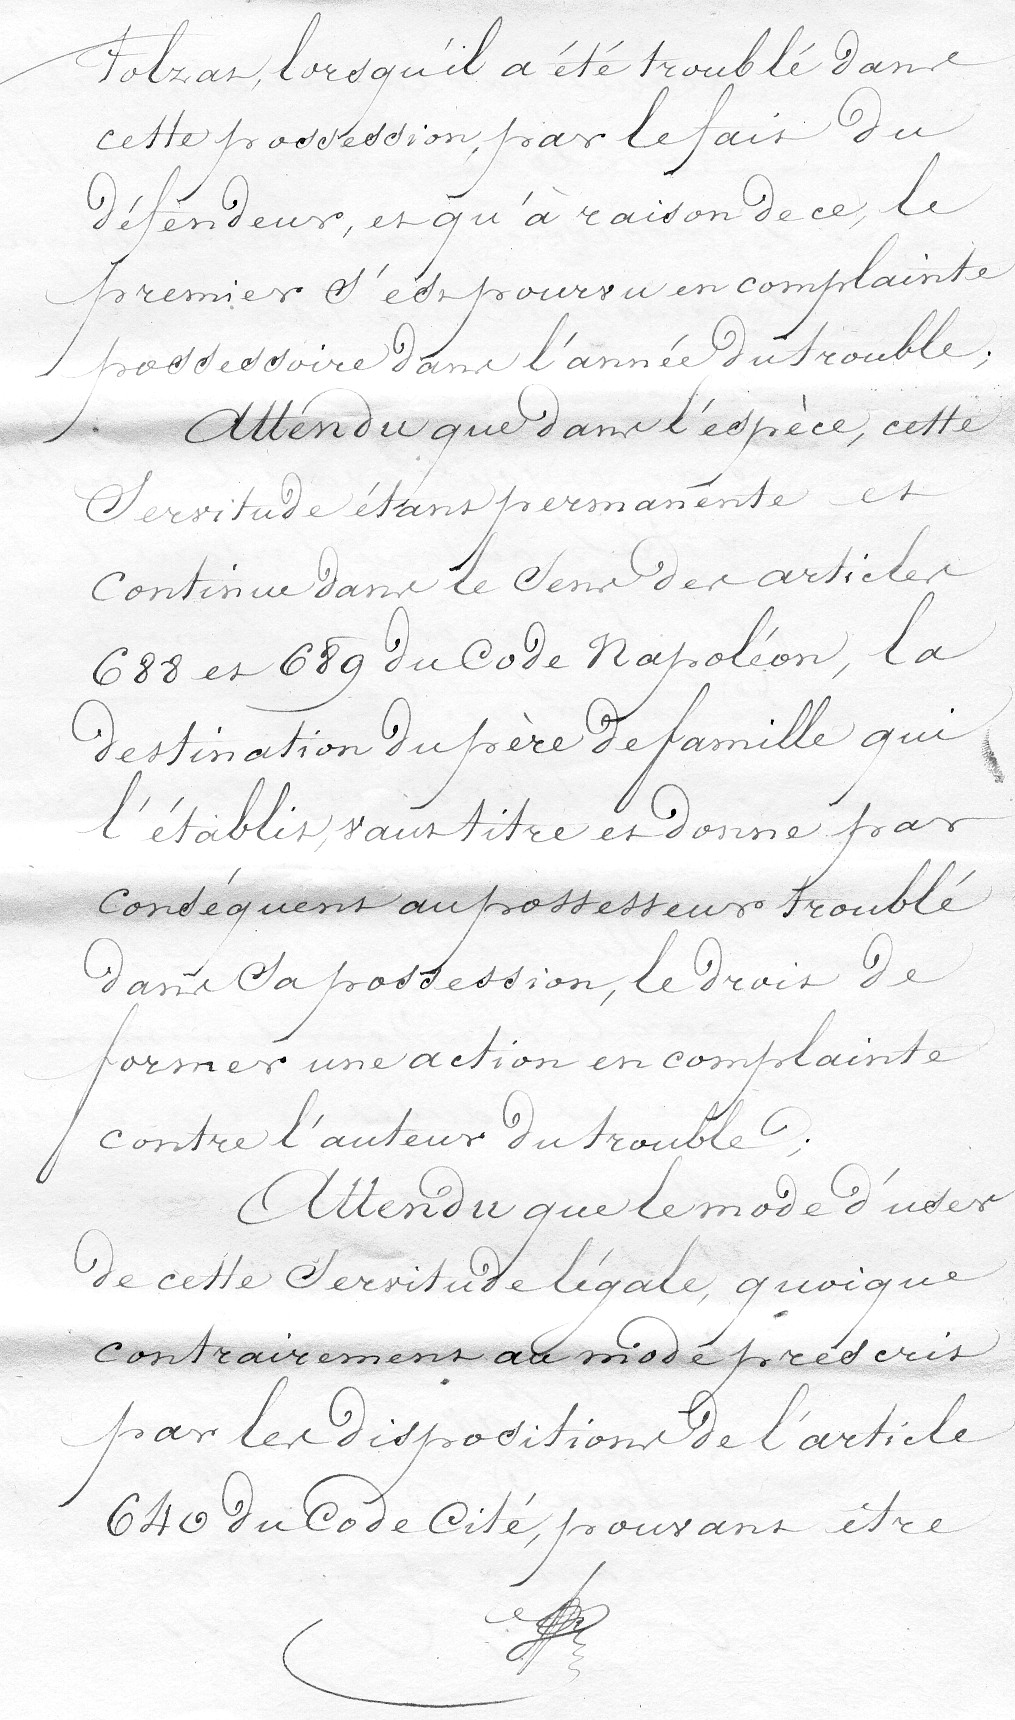 Folzat, lorsqu'il a été troublé dans
cette possession, par le fait du
défendeur, et qu'à raison de ce, le
premier s'est pourvu en complainte
possessoire dans l'année du trouble;
Attendu que dans l'espèce, cette
Servitude étant permanente et
continue dans le Sens des articles
688 et 689 du Code Napoléon, la
destination du père de famille qui
l'établit, vaut titre et donne par
conséquent au possesseur troublé
dans Sa possession, le droit de
former une action en complainte
contre l'auteur du trouble;
Attendu que le mode d'user
de cette Servitude légale, quoique
contrairement au mode prescrit
par les dispositions de l'article
640 du Code Cité, pouvant être